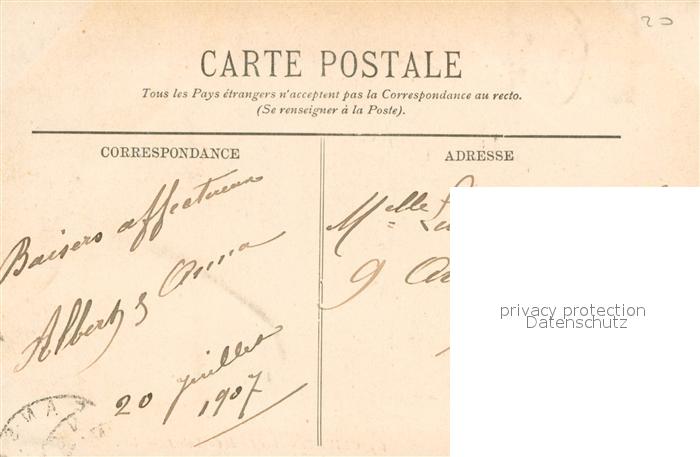 20
CARTE POSTALE
Tous les Pays étrangers n'acceptent pas la Correspondance au recto.
(Se renseigner à la Poste).
CORRESPONDANCE
ADRESSE
Baisers affectueux
Albert & Anna
20 juillet
1907
Melle
9
privacy protection
Datenschutz